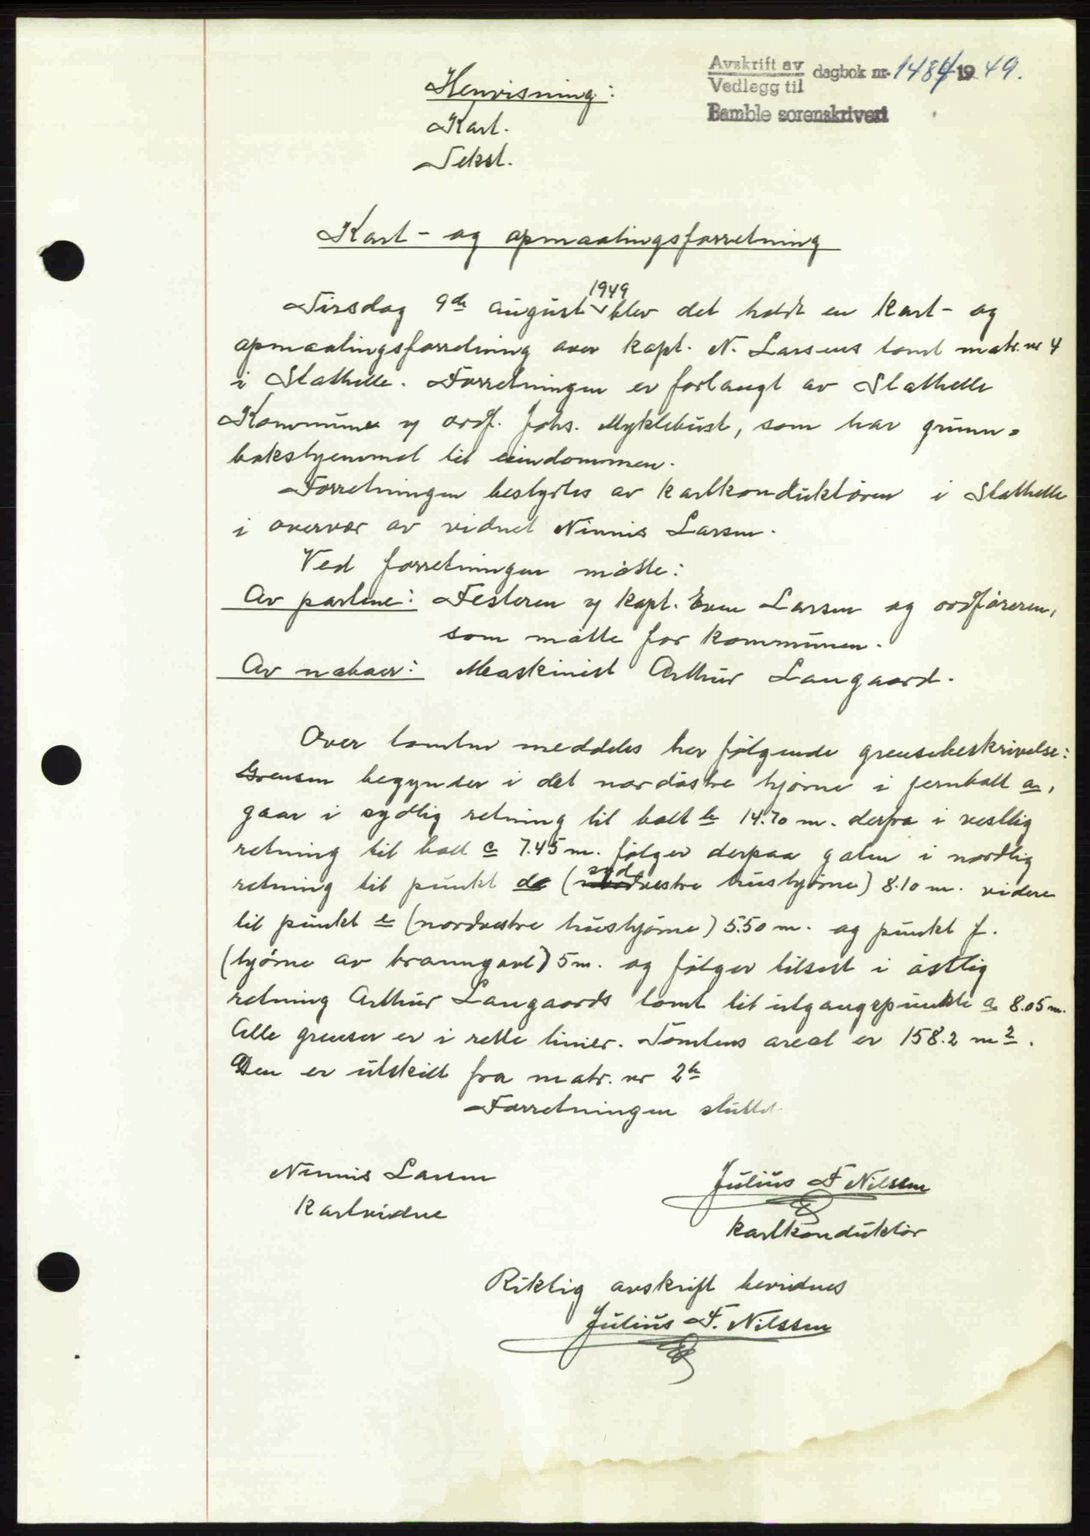 Avskrift av
Vedlegg til
dagbok nr. 1484 1949.
Bamble sorenskriveri
Henvisning:
Kart.
Tekst.
Kart- og opmaalingsforretning
Tirsdag 9de august 1949 blev det holdt en kart- og
opmaalingsforretning over kapt. N. Larsens tomt matr. nr 4
i Stathelle. Forretningen er forlangt av Stathelle
Kommune v/ ordf. Johs. Myklebust, som har grunn=
bokshjemmel til eiendommen.
Forretningen bestyrtes av kartkonduktøren i Stathelle
i overvær av vidnet Ninnis Larsen.
Ved forretningen møtte:
Av partene: Festeren v/ kapt. Even Larsen og ordføreren,
som møtte for kommunen.
Av naboer: Maskinist Arthur Langaard.
Over tomten meddeles her følgende grensebeskrivelse:
Grensen begynder i det nordøstre hjørne i jernbolt a,
gaar i sydlig retning til bolt b 14.70 m. derfra i vestlig
retning til bolt c 7.45 m. følger derpaa gaten i nordlig
retning til punkt d (sydvestre hushjørne) 8.10 m. videre
til punkt e (nordvestre hushjørne) 5.50 m. og punkt f.
(hjørne av branngavl) 5 m. og følger tilsist i østlig
retning Arthur Langaards tomt til utgangspunkte a 8.05 m.
Alle grenser er i rette linier. Tomtens areal er 158.2 m2.
Den er utskilt fra matr. nr 2b
Forretningen sluttet
Ninnis Larsen
Kartvidne
Julius F Nilssen
kartkonduktør
Riktig avskrift bevidnes
Julius F. Nilssen